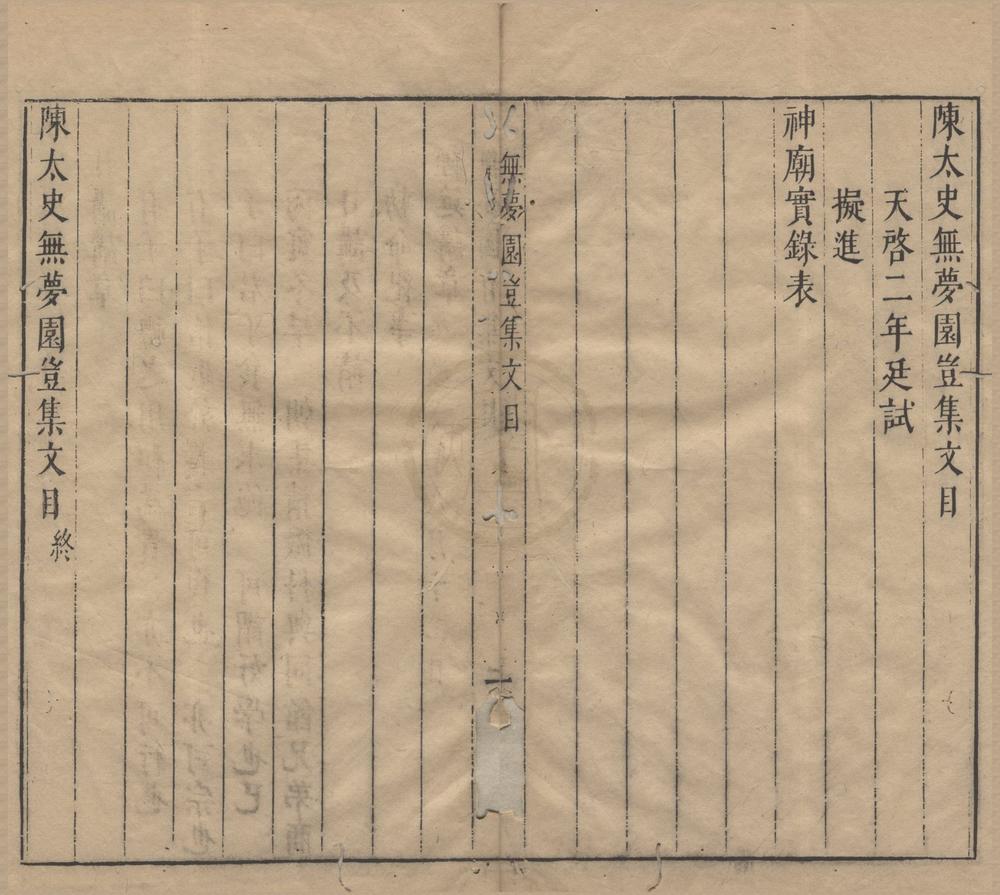 陳太史無夢園豈集文目
天啓二年廷試
擬進
神廟實錄表
無夢園豈集文目
二
陳太史無夢園豈集文目終